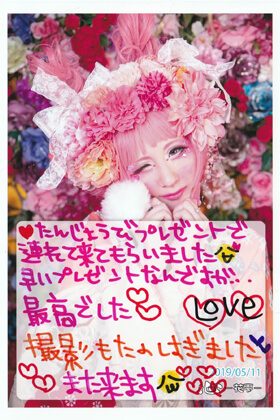 ♥たんじょうびプレゼントで
連れて来てもらいました
早いプレゼントなんですが..
最高でした♡ Love
撮影もたのしすぎました
また来ます
2019/05/11